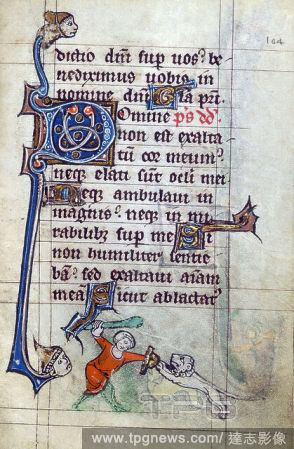 104
dictio dnī sup uos? be
nediximus uobis in
nomine dnī Gl̄a pr̄i.
Domine ps dd̄.
non est exalta
tū cor meum?
neqȝ elati sūt oc̄li mei
Neqȝ ambulaui in
magnis? neqȝ in mi
rabilibȝ sup me Si
non humiliter sentie
bā? sed exaltaui aīam
meā Sicut ablactat?
TPG
www.tpgnews.com / 達志影像